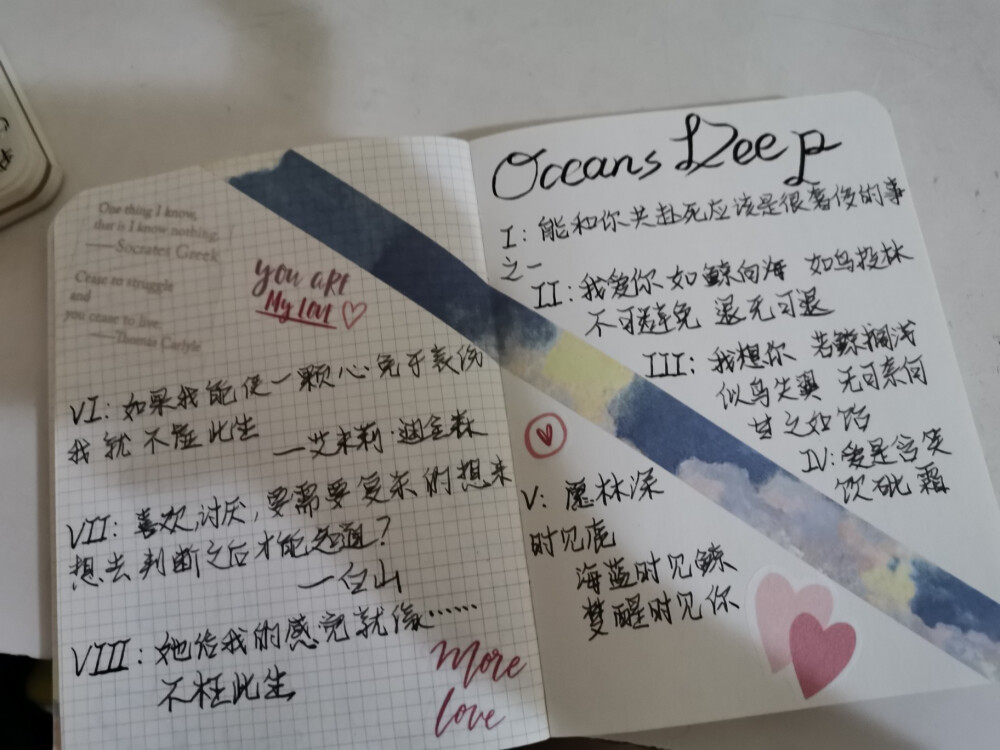 One thing I know,
that is I know nothing.
——Socrates Greek
Cease to struggle
and
you cease to live.
——Thomas Carlyle
you are
My love
VI: 如果我能使一颗心免于哀伤
我就不虚此生
—艾米莉·迪金森
VII: 喜欢,讨厌,要需要复杂的想来
想去判断之后才能知道?
—白山
VIII: 她给我的感觉就像……
不枉此生
More
love
Oceans Deep
I: 能和你共赴死应该是很奢侈的事
之一
II: 我爱你 如鲸向海 如鸟投林
不可避免 退无可退
III: 我想你 若鲸搁浅
似鸟失翼 无可奈何
甘之如饴
IV: 爱是含笑
饮砒霜
V: 愿林深
时见鹿
海蓝时见鲸
梦醒时见你